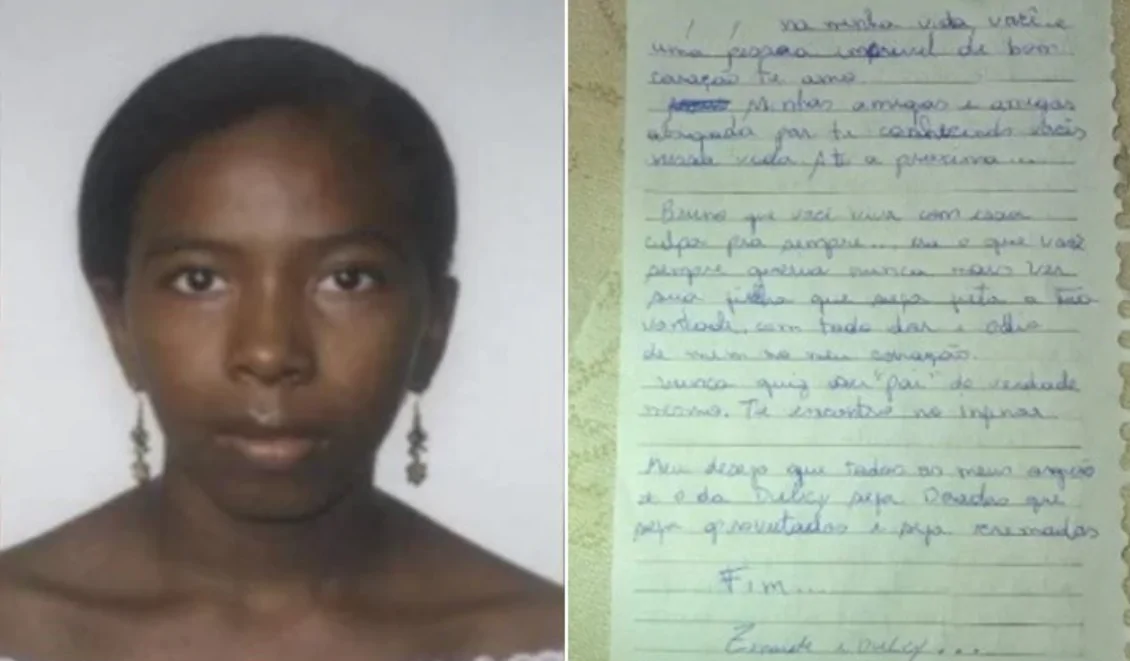 na minha vida, você e
uma pessoa de bom
coração te amo.
Minhas amigas e amigos
obrigada por te conhecendo vocês
nessa vida. Até a proxima...
Bruno que você viva com essa
culpa pra sempre... era o que você
sempre queria nunca mais ver
sua filha que seja feita a tua
vontade, com toda dor e odio
de mim no meu coração.
nunca quiz ser "pai" de verdade
mesmo. Te encontro no infenor
Meu desejo que todos os meus orgão
e o da Dulcy seja Doados que
seja aproveitados e seja cremados
Fim...
e Dulcy...